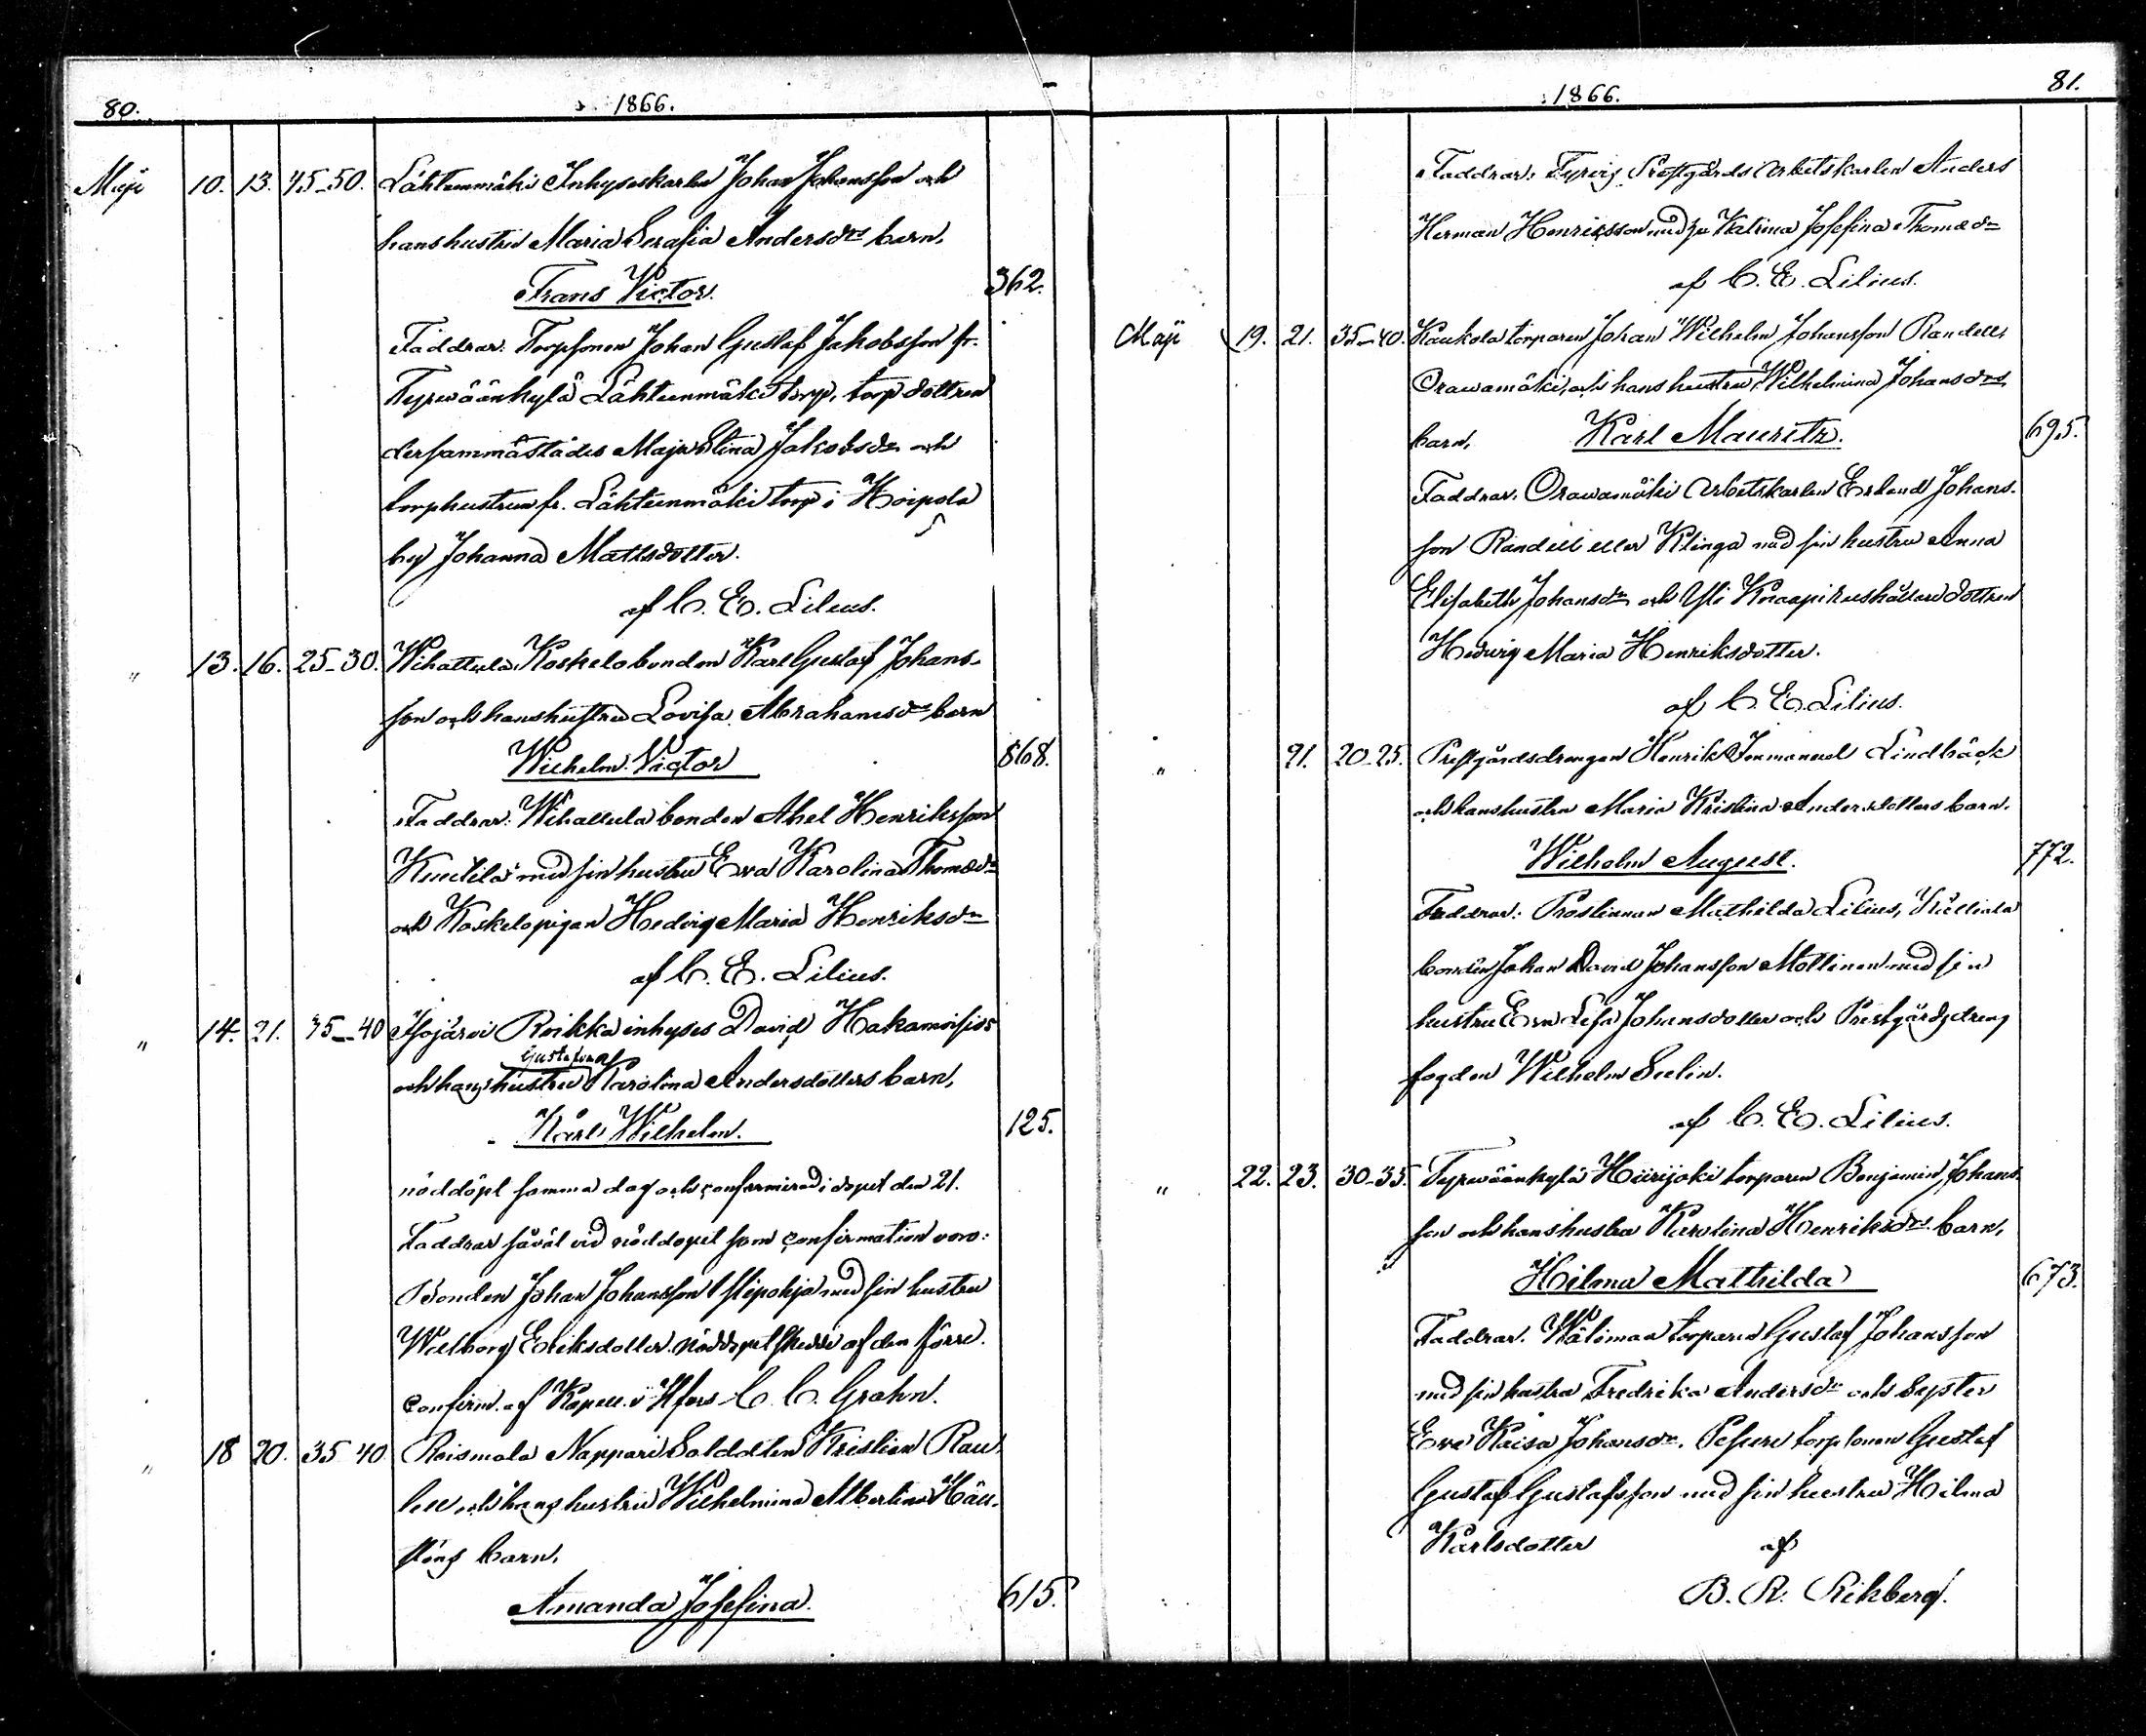 80. 1866.
Maji 10. 13. 45-50. Lähteenmäki Inhyseskarlen Johan Johansson och
hans hustru Maria Serafia Andersdrs barn,
Frans Victor. 362.
Faddrar: Torpsonen Johan Gustaf Jakobsson fr.
Tyrwäänkylä Lähteenmäki torp, torpdottren
dersammastädes Maja Stina Jakobsdr och
torphustrun fr. Lähteenmäki torp i Hoipola
by Johanna Mattsdotter.
af C. E. Lilius.
" 13. 16. 25-30. Wihattula Koskelo bonden Karl Gustaf Johans-
son och hans hustru Lovisa Abrahamsdrs barn
Wilhelm Victor 868.
Faddrar: Wihattula bonden Abel Henriksson
Knutila med sin hustru Eva Karolina Thomædr
och Koskelo pigan Hedvig Maria Henriksdr
af C. E. Lilius.
" 14. 21. 35-40 Isojärvi Roikka inhyses David Hakamoisios
Gustafson
och hans hustru Karolina Andersdotters barn,
Karl Wilhelm. 125.
nöddöpt samma dag och confirmerad i dopet den 21.
Faddrar såväl vid nöddopet som confirmation voro:
Bonden Johan Johansson Ylipohja med sin hustru
Walborg Eriksdotter. Nöddopet skedde af den förre.
Confirm. af Kapell. i Kfors C. C. Grahn.
" 18 20. 35-40 Roismala Nappari Soldaten Kristian Rau-
och hans hustru Wilhelmina Albertina
barn,
Amanda Josefina. 615.
1866. 81.
Faddrar: Tyrvis Prostgårds Arbetskarlen Anders
Herman Henriksson med hu Katrina Josefina Thomædr
af C. E. Lilius.
Maji 19. 21. 35-40. Kaukola torparen Johan Wilhelm Johansson Randell,
Orawamäki, och hans hustru Wilhelmina Johansdrs
barn, Karl Mauritz. 695.
Faddrar: Orawamäki Arbetskarlen Erland Johans-
son Randell eller Klinga med sin hustru Anna
Elisabeth Johansdr och Yli Knaapi rushållare dottren
Hedvig Maria Henriksdotter.
af C. E. Lilius.
" 21. 20-25. Prestgårdsdrengen Henrik Immanuel Lindbäck
och hans hustru Maria Kristina Andersdotters barn,
Wilhelm August. 772.
Faddrar: Prostinnan Mathilda Lilius, Kiilliala
bonden Johan David Johansson Mollinen med sin
hustru Eva Lisa Johansdotter och Prestgårdsdreng
fogden Wilhelm Selin.
af C. E. Lilius.
" 22. 23. 30-35. Tyrwäänkylä Hiirijoki torparen Benjamin Johans-
son och hans hustru Karolina Henriksdrs barn,
Hilma Mathilda 673.
Faddrar: Wälimaa torparen Gustaf Johansson
med sin hustru Fredrika Andersdr och Syster
Eva Kaisa Johansdr. torpsonen Gustaf
Gustaf Gustafsson med sin hustru Hilma
Karlsdotter af
B. R. Rikberg.